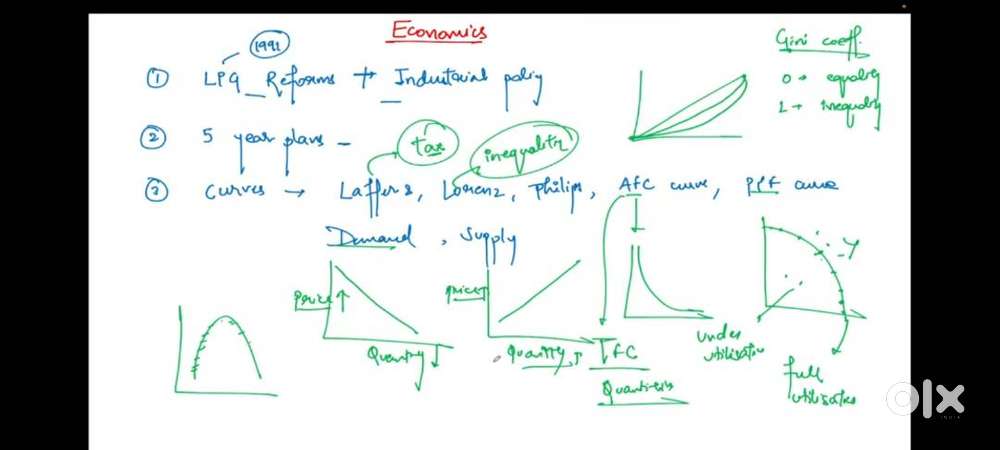 Economics
1991
Gini coeff.
0 → equality
1 → inequality
① LPG Reforms + Industrial policy
② 5 year plans -
tax
inequality
③ Curves → Laffers, Lorenz, Philips, AFC curve, PPF curve
Demand, Supply
Price ↑
Quantity ↓
Price ↑
Quantity ↑
TFC
Quantities
under
utilisation
full
utilisation
olx
INDIA